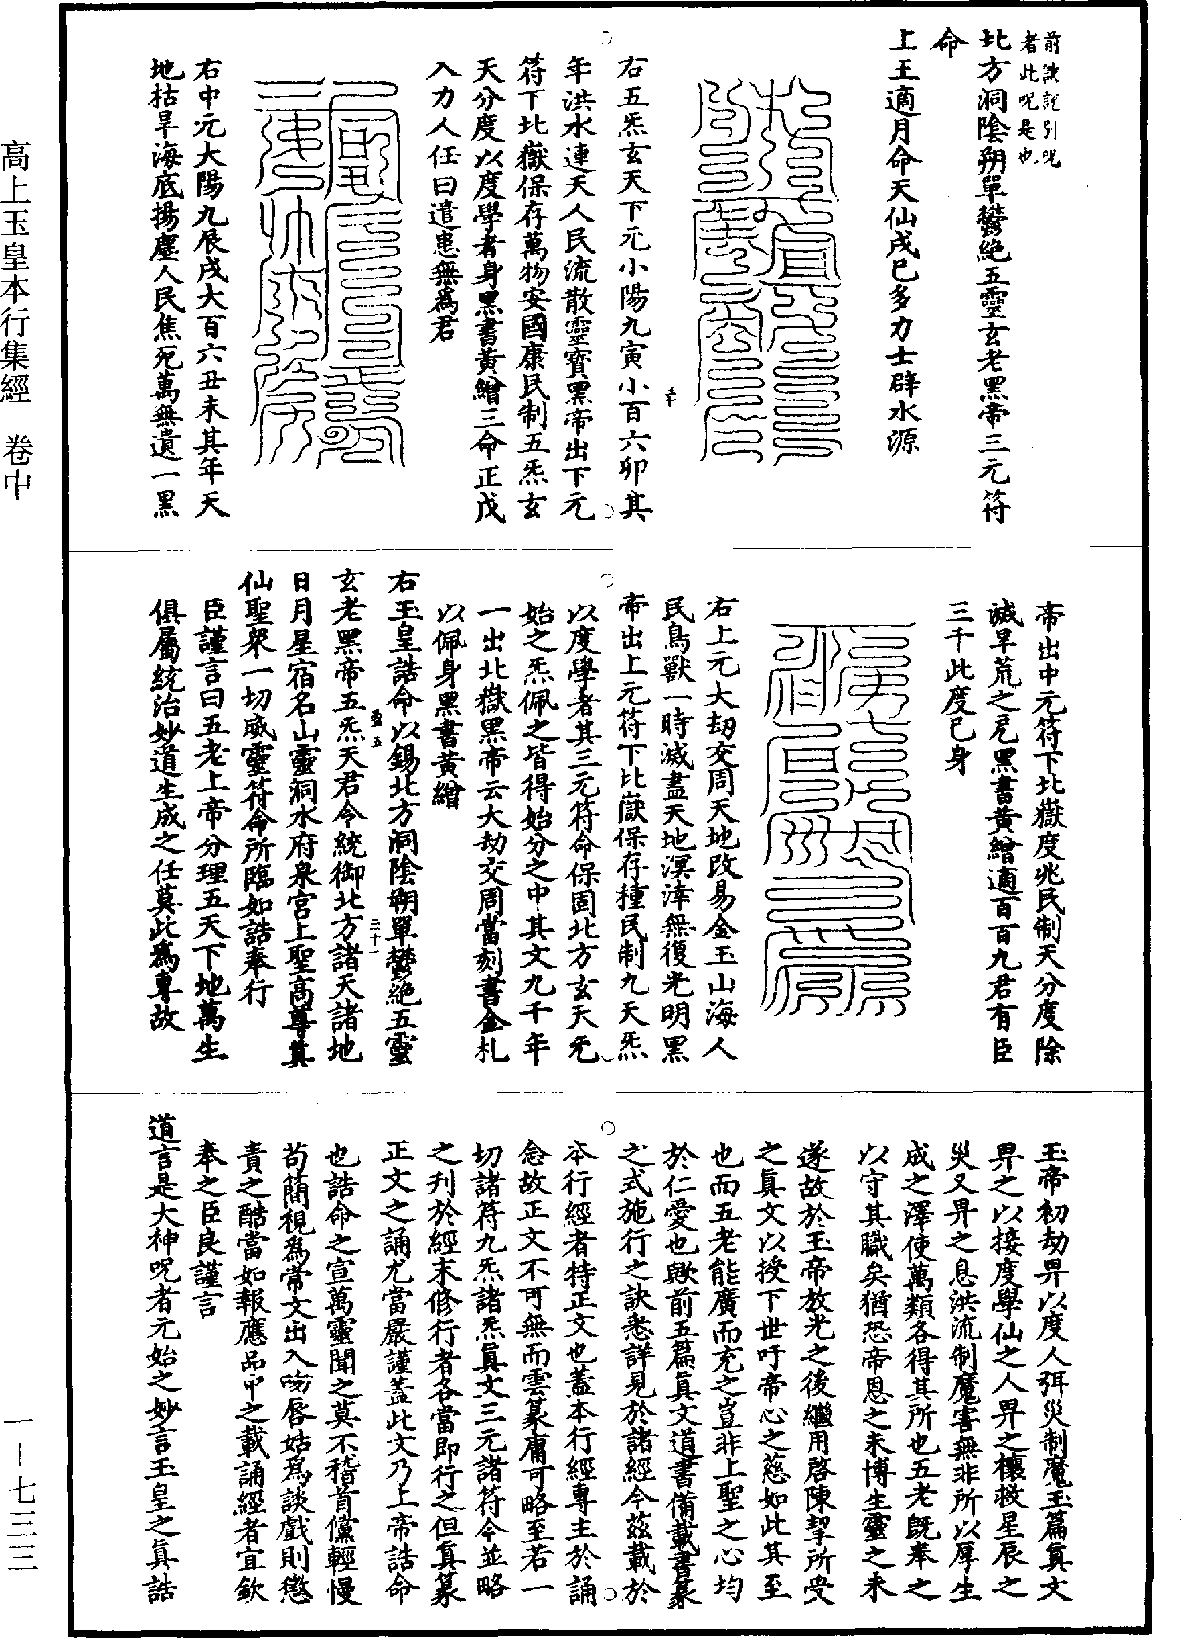 高上玉皇本行集經　卷中
一－七三三
前誠說引呪
者此呪是也
北方洞陰朔單鬱絕五靈玄老黑帝三元符
命
上王適月命天仙戌巳多力士辟水源
右五炁玄天下元小陽九寅小百六卯其
年洪水連天人民流散靈寶黑帝出下元
符下北嶽保存萬物安國康民制五炁玄
天分度以度學者身黑書黃繒三命正戊
入力人任曰遣患無為君
右中元大陽九辰戌大百六丑未其年天
地枯旱海底揚塵人民焦死萬無遺一黑
帝出中元符下北嶽度兆民制天分度除
滅旱荒之厄黑書黃繒適百百九君有臣
三千此度已身
右上元大劫交周天地改易金玉山海人
民鳥獸一時滅盡天地溟涬無復光明黑
帝出上元符下北嶽保存種民制九天炁
以度學者其三元符命保固北方玄天旡
始之炁佩之皆得始分之中其文九千年
一出北嶽黑帝云大劫交周當刻書金札
以佩身黑書黃繒
右玉皇誥命以錫北方洞陰朔單鬱絕五靈
玄老黑帝五炁天君令統御北方諸天諸地
日月星宿名山靈洞水府泉宮上聖高尊真
仙聖眾一切威靈符命所臨如誥奉行
臣謹言曰五老上帝分理五天下地萬生
俱屬統治妙道生成之任莫此為專故
玉帝初劫畀以度人弭災制魔玉篇真文
畀之以接度學仙之人畀之禳救星辰之
災又畀之息洪流制魔害無非所以厚生
成之澤使萬類各得其所也五老既奉之
以守其職矣猶恐帝恩之未博生靈之未
遂故於玉帝放光之後繼用啓陳挈所受
之真文以授下世吁帝心之慈如此其至
也而五老能廣而充之豈非上聖之心均
於仁愛也歟前五篇真文道書備載書篆
之式施行之訣悉詳見於諸經今茲載於
本行經者特正文也蓋本行經專主於誦
念故正文不可無而雲篆庸可略至若一
切諸符九炁諸炁真文三元諸符今並略
之刊於經末修行者各當即行之但真篆
正文之誦尤當嚴謹蓋此文乃上帝誥命
也誥命之宣萬靈聞之莫不稽首儻輕慢
苟簡視為常文出入吻唇姑為談戲則懲
責之酷當如報應品中之載誦經者宜欽
奉之臣良謹言
道言是大神呪者元始之妙言玉皇之真誥